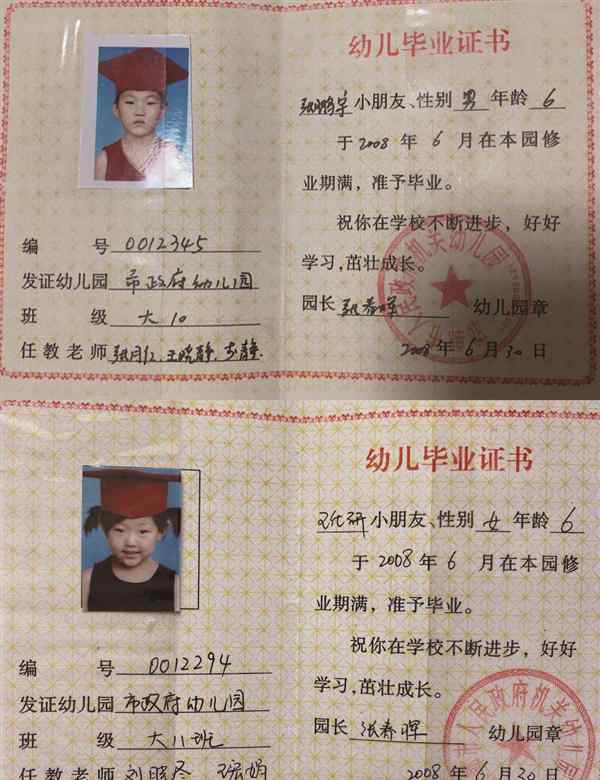 幼儿毕业证书
小朋友、性别 男 年龄 6
于2008 年 6 月在本园修
业期满，准予毕业。
祝你在学校不断进步，好好
学习，茁壮成长。
园长 张春晖 幼儿园章
2008 年 6 月 30 日
编 号 0012345
发证幼儿园 市政府幼儿园
班 级 大10
任教老师 张月红.王晓静.
幼儿毕业证书
小朋友、性别 女 年龄 6
于 2008 年 6 月在本园修
业期满，准予毕业。
祝你在学校不断进步，好好
学习，茁壮成长。
园长 张春晖 幼儿园章
2008 年 6 月 30 日
编 号 0012294
发证幼儿园 市政府幼儿园
班 级 大八班
任教老师
人民政府机关幼儿园